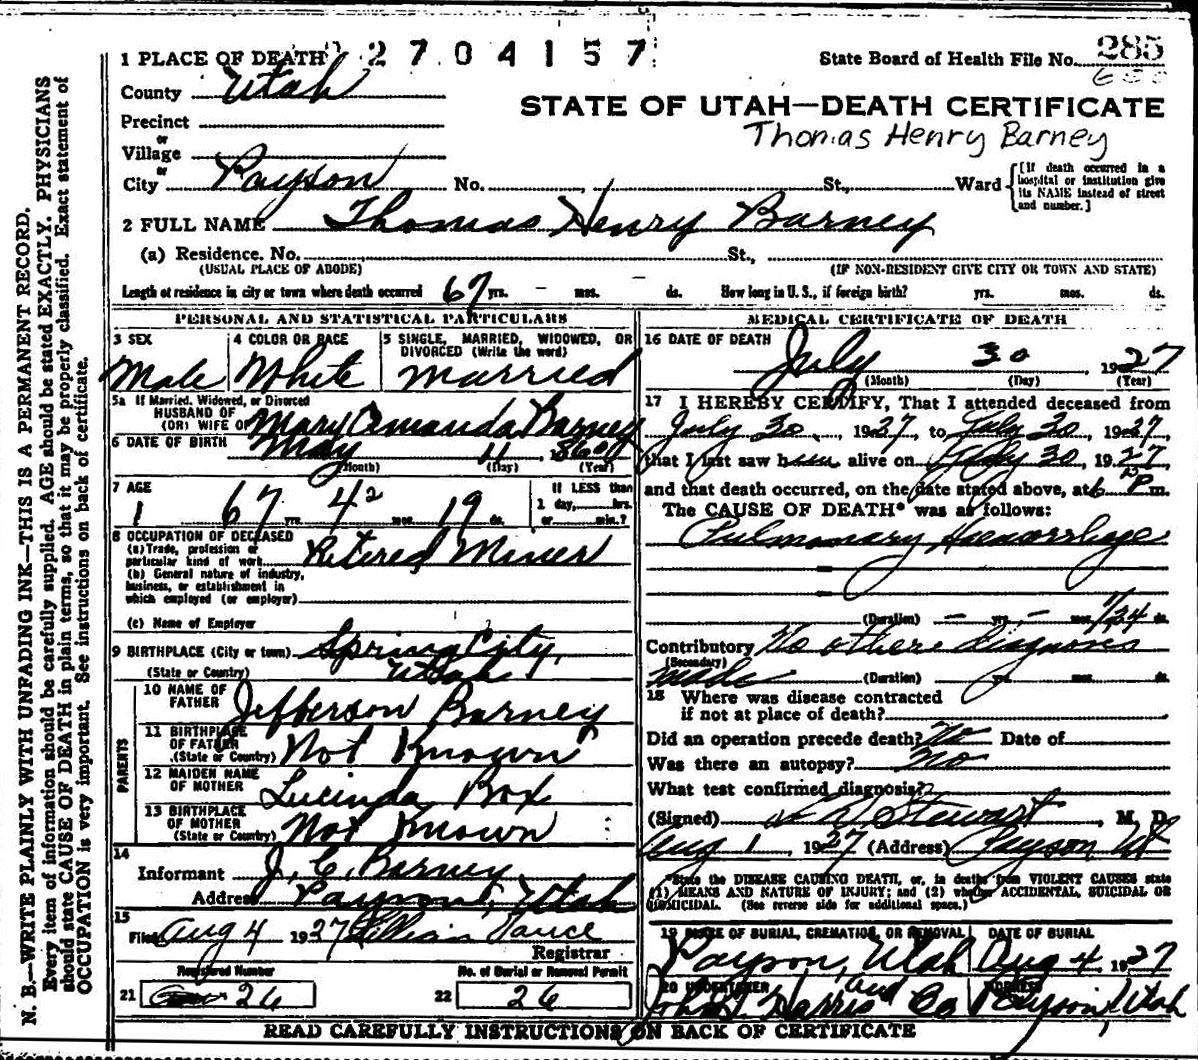 1 PLACE OF DEATH 2 7 0 4 1 5 7
State Board of Health File No. 285
County Utah
STATE OF UTAH—DEATH CERTIFICATE
Precinct
Thomas Henry Barney
or
Village
or
City Payson No. , St., Ward [If death occurred in a hospital or institution give its NAME instead of street and number.]
2 FULL NAME Thomas Henry Barney
(a) Residence. No. St.,
(USUAL PLACE OF ABODE) (IF NON-RESIDENT GIVE CITY OR TOWN AND STATE)
Length of residence in city or town where death occurred 67 yrs. – mos. – ds. How long in U. S., if foreign birth? yrs. mos. ds.
PERSONAL AND STATISTICAL PARTICULARS
3 SEX
Male
4 COLOR OR RACE
White
5 SINGLE, MARRIED, WIDOWED, OR
DIVORCED (Write the word)
Married
5a If Married, Widowed, or Divorced
HUSBAND OF
(OR) WIFE OF Mary Amanda Barney
6 DATE OF BIRTH May 11, 1860
(Month) (Day) (Year)
7 AGE
67 yrs. 2 mos. 19 ds.
If LESS than
1 day, hrs.
or min.?
8 OCCUPATION OF DECEASED
(a) Trade, profession or
particular kind of work Retired Miner
(b) General nature of industry,
business, or establishment in
which employed (or employer)
(c) Name of Employer
9 BIRTHPLACE (City or town) Spring City,
(State or Country) Utah
PARENTS
10 NAME OF
FATHER Jefferson Barney
11 BIRTHPLACE
OF FATHER
(State or Country) Not Known
12 MAIDEN NAME
OF MOTHER Lucinda Box
13 BIRTHPLACE
OF MOTHER
(State or Country) Not Known
14
Informant J. C. Barney
Address Payson, Utah
15
Filed Aug 4 1927 Lillian Vance
Registrar
Registered Number
21 26
No. of Burial or Removal Permit
22 26
MEDICAL CERTIFICATE OF DEATH
16 DATE OF DEATH
July 30, 1927
(Month) (Day) (Year)
17 I HEREBY CERTIFY, That I attended deceased from
July 30, 1927, to July 30, 1927
that I last saw him alive on July 30, 1927
and that death occurred, on the date stated above, at 6 P m.
The CAUSE OF DEATH* was as follows:
Pulmonary Haemorrhage
(Duration) – yrs. – mos. 1/24 ds.
Contributory No other diagnosis
(Secondary)
made (Duration) yrs. mos. ds.
18 Where was disease contracted
if not at place of death?
Did an operation precede death? No Date of
Was there an autopsy? No
What test confirmed diagnosis?
(Signed) Stewart, M. D.
Aug 1, 1927 (Address) Payson Ut
*State the DISEASE CAUSING DEATH, or, in deaths from VIOLENT CAUSES state
(1) MEANS AND NATURE OF INJURY; and (2) whether ACCIDENTAL, SUICIDAL OR
HOMICIDAL. (See reverse side for additional space.)
19 PLACE OF BURIAL, CREMATION, OR REMOVAL
Payson, Utah
DATE OF BURIAL
Aug 4, 1927
20 UNDERTAKER
John T. Harris and Co
ADDRESS
Payson, Utah
READ CAREFULLY INSTRUCTIONS ON BACK OF CERTIFICATE
N. B.—WRITE PLAINLY WITH UNFADING INK—THIS IS A PERMANENT RECORD.
Every item of information should be carefully supplied. AGE should be stated EXACTLY. PHYSICIANS
should state CAUSE OF DEATH in plain terms, so that it may be properly classified. Exact statement of
OCCUPATION is very important. See instructions on back of certificate.